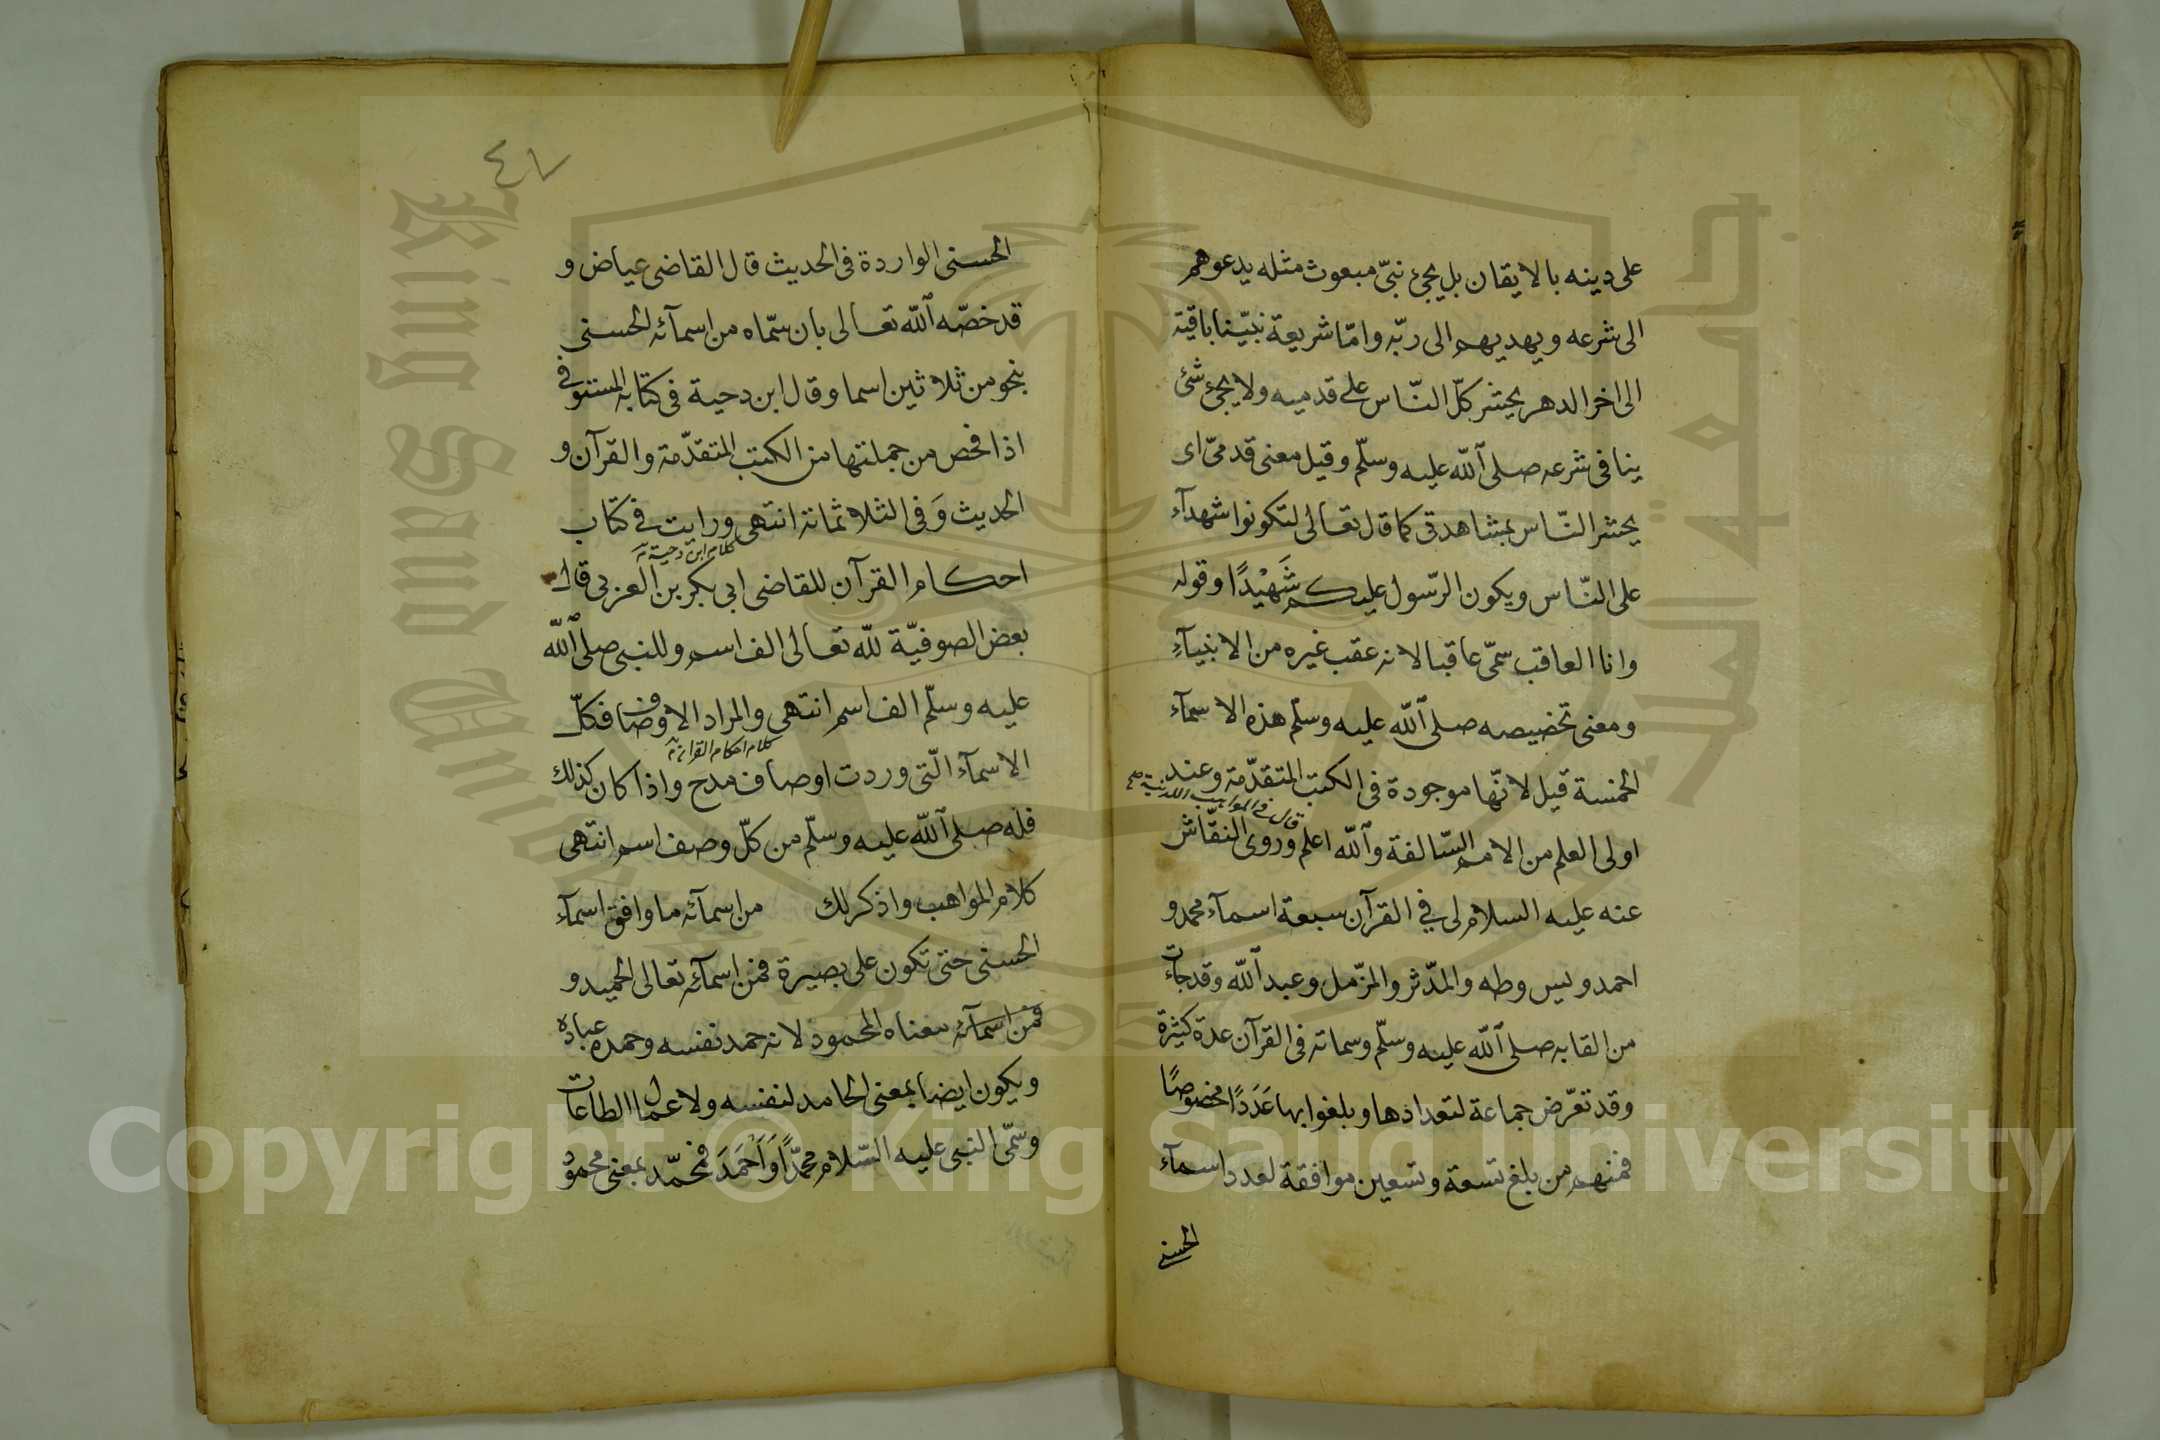 على دينه بالايقان بل يجئ نبىّ مبعوث مثله يدعوهم
الى شرعه ويهديهم الى ربّه وامّا شريعة نبيّنا باقية
الى اخر الدهر يحشر كلّ النّاس على قدميه ولا يجئ شئ
ينافى شرعه صلى الله عليه وسلّم وقيل معنى قدمىّ اى
يحشر النّاس بمشاهدتى كما قال تعالى لتكونوا شهدآء
على النّاس ويكون الرّسول عليكم شَهِيْدًا وقوله
وانا العاقب سمّى عاقبا لانه عقب غيره من الانبيآءِ
ومعنى تخصيصه صلى الله عليه وسلّم هذه الاسمآء
الخمسة قيل لانّها موجودة فى الكتب المتقدّمة وعند
قال فى المواهب اللدنية صح
اولى العلم من الامم السّالفة والله اعلم وروى النقّاش
عنه عليه السلام لى في القرآن سبعة اسمآء محمد و
احمد ويس وطه والمدّثر والمزّمل وعبد الله وقد جاءت
من القابه صلى الله عليه وسلّم وسماته فى القرآن عدة كثيرة
وقد تعرّض جماعة لتعدادها وبلغوا بها عَدَدًا مخصوصًا
فمنهم من بلغ تسعة وتسعين موافقة لعدد اسمآء
الحسنى
٤٨
الحسنى الواردة فى الحديث قال القاضى عياض و
قد خصّه الله تعالى بان سمّاه من اسمآئه الحسنى
بنحو من ثلاثين اسما وقال ابن دحية فى كتابه المستوفى
اذا فحص من جملتها من الكتب المتقدّمة والقرآن و
الحديث وَفى الثلاثمائة انتهى ورايت فى كتاب
كلام ابن دحية
احكام القرآن للقاضى ابى بكر بن العربى قال
بعض الصوفيّة لله تعالى الف اسم وللنبى صلى الله
عليه وسلّم الف اسم انتهى والمراد الاوصاف فكلّ
كلام احكام القرآن
الاسمآء الّتى وردت اوصاف مدح واذا كان كذلك
فله صلى الله عليه وسلّم من كلّ وصف اسم انتهى
كلام المواهب واذكر لك من اسمآئه ما وافق اسمآء
الحسنى حتى تكون على بصيرة فمن اسمآئه تعالى الحميد و
فمن اسمآئه معناه المحمود لانه حمد نفسه وحمده عباده
ويكون ايضا بمعنى الحامد لنفسه ولاعمال الطاعات
وسمّى النبى عليه السّلام محمّدًا وَاَحْمَدَ فمحمّد بمعنى محمود
Copyright © King Saud University
King Saud University
جامعة الملك سعود
1957